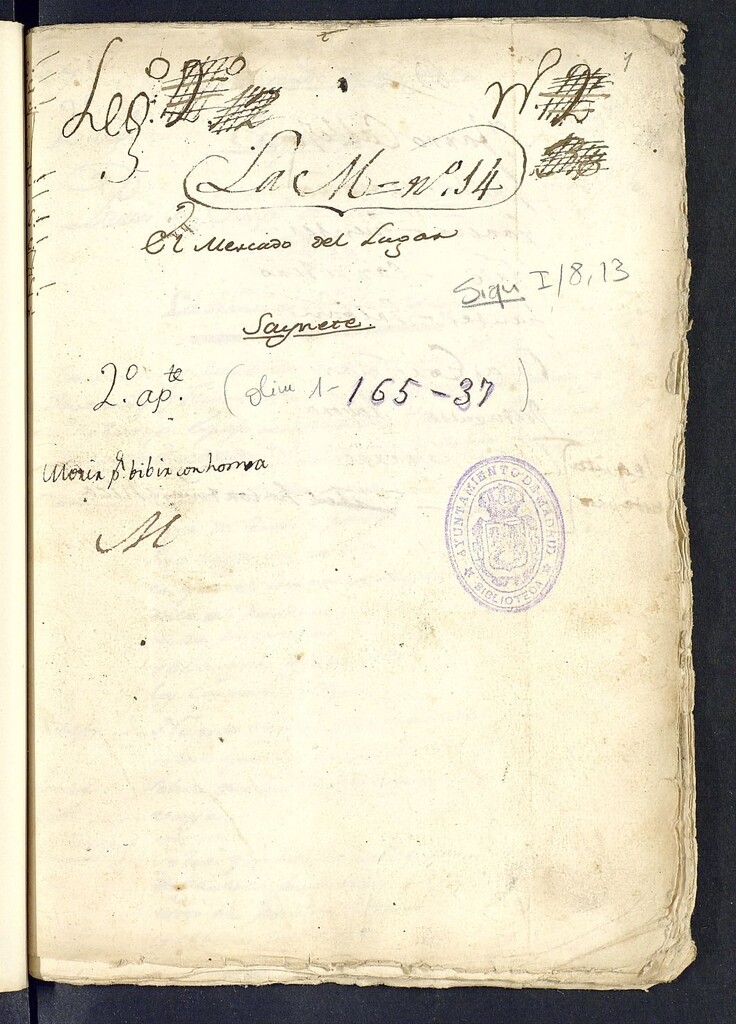 1
Leg.º 2º nº. 2
La M = nº. 14
El Mercado del Lugar
Sign I/8, 13
Saynete.
2º. ap.te (olim 1-165-37)
Morir pr. bibir con honrra
M
AYUNTAMIENTO DE MADRID
BIBLIOTECA